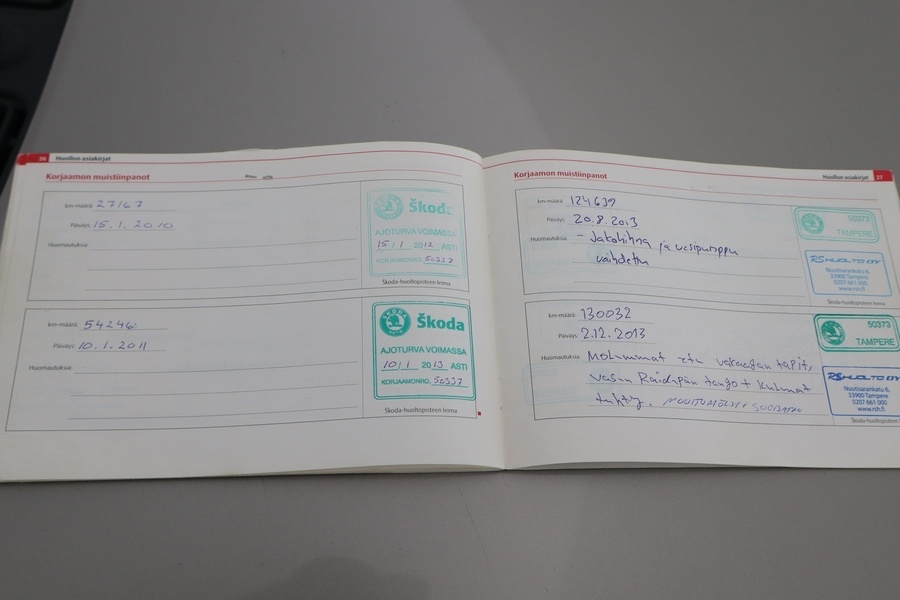 26 Huollon asiakirjat
Korjaamon muistiinpanot
km-määrä: 27167
Päiväys: 15.1.2010
Huomautuksia:
Škoda
AJOTURVA VOIMASSA
15/1 2012 ASTI
KORJAAMONRO. 50337
Škoda-huoltopisteen leima
km-määrä: 54246
Päiväys: 10.1.2011
Huomautuksia:
ŠKODA
AUTO
Škoda
AJOTURVA VOIMASSA
10/1 2013 ASTI
KORJAAMONRO. 50337
Škoda-huoltopisteen leima
Huollon asiakirjat 27
Korjaamon muistiinpanot
km-määrä: 124639
Päiväys: 20.8.2013
Huomautuksia: - Jakohihna ja vesipumppu
vaihdettu
50373
TAMPERE
RS HUOLTO OY
Nuutisarankatu 6,
33900 Tampere
0207 661 000
www.rsh.fi
Škoda-huoltopisteen leima
km-määrä: 130032
Päiväys: 2.12.2013
Huomautuksia: Molemmat etu vakaajan tapit,
vasen Raidepän tanko + kulmat
tehty.
50373
TAMPERE
RS HUOLTO OY
Nuutisarankatu 6,
33900 Tampere
0207 661 000
www.rsh.fi
Škoda-huoltopisteen leima